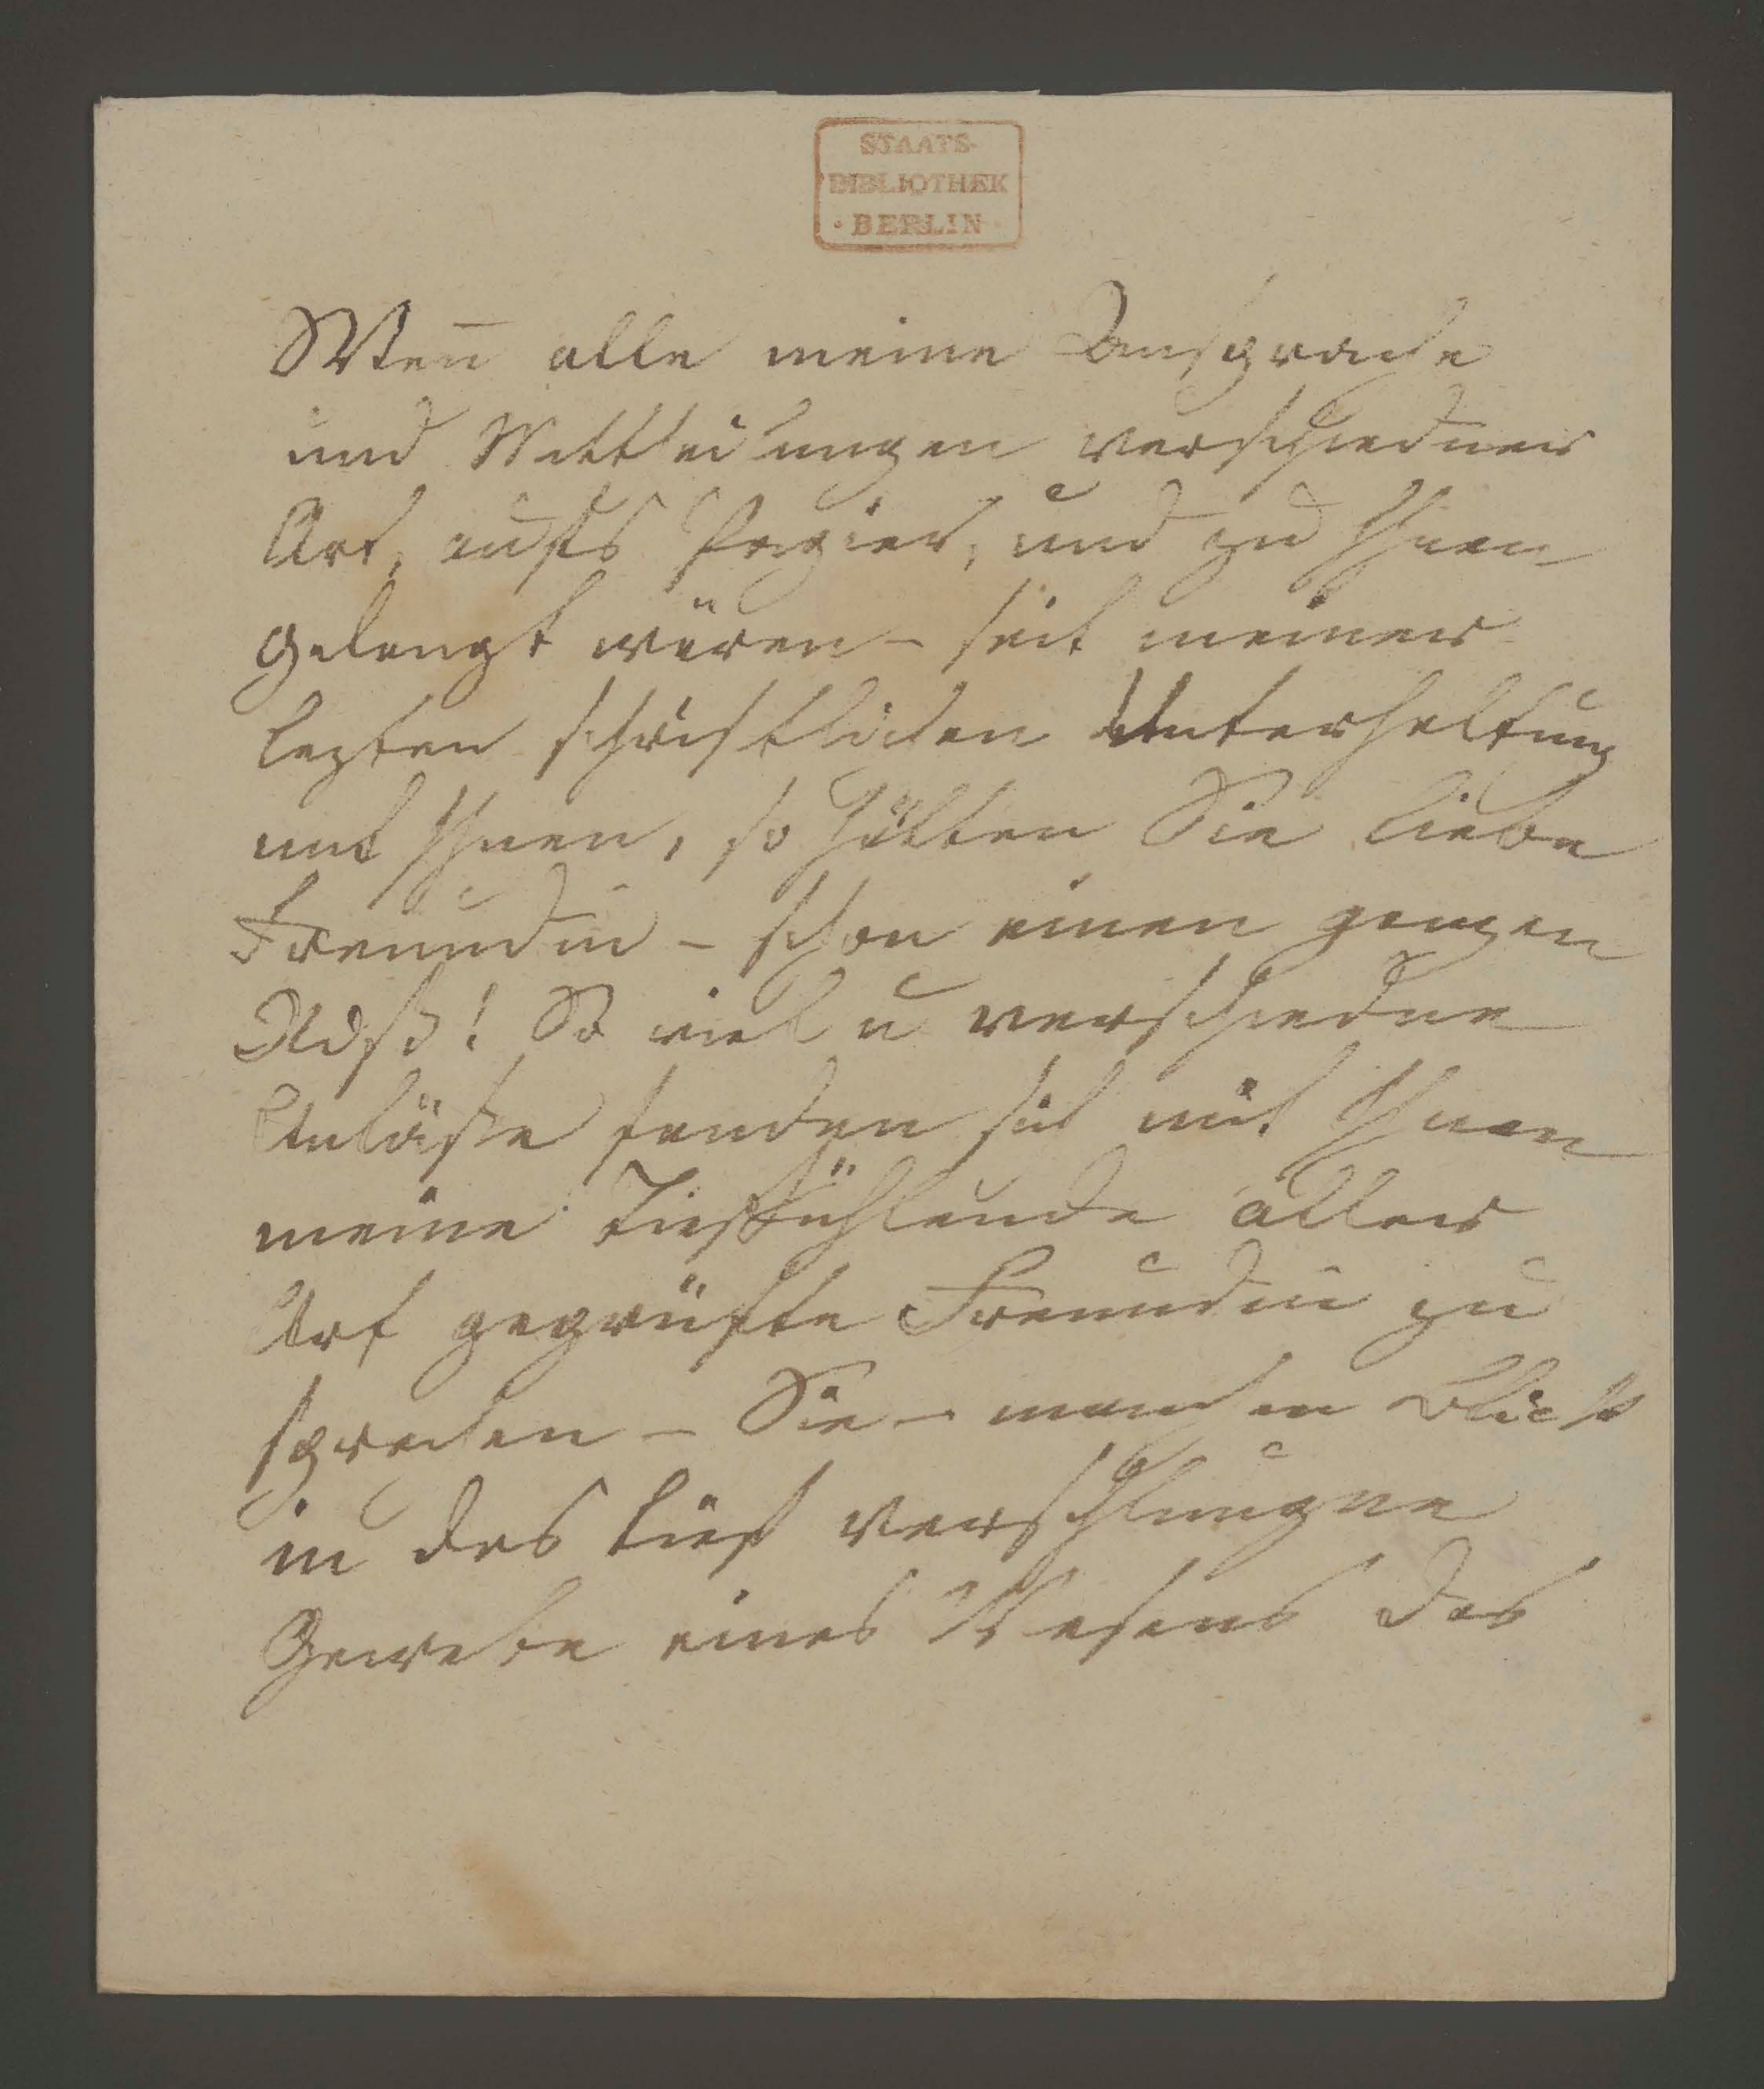 STAATS-
BIBLIOTHEK
· BERLIN ·
Wen̄ alle meine Ansprache
und Mittheilungen verschiedner
Art, aufs Papier, und zu Ihnen
gelangt wären – seit meiner
lezten schriftlichen Unterhaltung
mit Ihnen, so hätten Sie liebe
Freundin – schon einen ganzen
So viel u verschiedne
Anläße fanden sich mit Ihnen
meine tieffühlende aller
Art geprüfte Freundin zu
sprechen – Sie – manchen Blick
in das tief verschlungne
Gewebe eines Wesens das